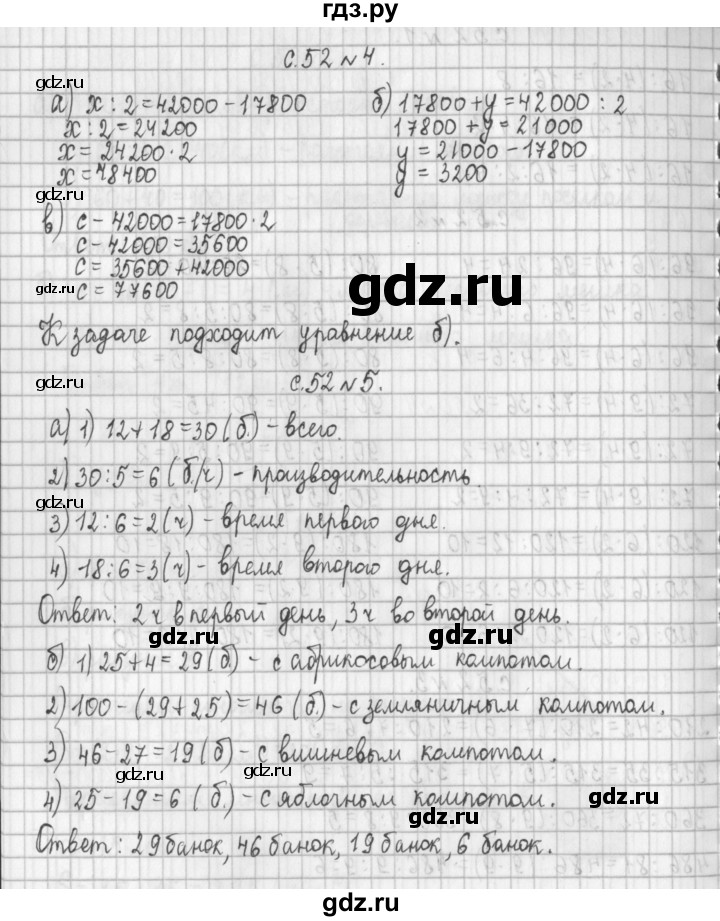 гдз.ру
с.52 №4.
gdz.ru
а) x : 2 = 42000 - 17800
x : 2 = 24200
x = 24200 · 2
x = 48400
б) 17800 + y = 42000 : 2
17800 + y = 21000
y = 21000 - 17800
y = 3200
gdz.ru
в) c - 42000 = 17800 · 2
c - 42000 = 35600
c = 35600 + 42000
c = 77600
gdz.ru
gdz.ru
К задаче подходит уравнение б).
gdz.ru
с.52 №5.
а) 1) 12 + 18 = 30 (б.) - всего.
2) 30 : 5 = 6 (б./ч) - производительность.
gdz.ru
3) 12 : 6 = 2 (ч) - время первого дня.
4) 18 : 6 = 3 (ч) - время второго дня.
Ответ: 2 ч в первый день, 3 ч во второй день.
gdz.ru
gdz.ru
б) 1) 25 + 4 = 29 (б.) - с абрикосовым компотом.
2) 100 - (29 + 25) = 46 (б.) - с земляничным компотом.
3) 46 - 27 = 19 (б) - с вишневым компотом.
gdz.ru
4) 25 - 19 = 6 (б.) - с яблочным компотом.
gdz.ru
gdz.ru
Ответ: 29 банок, 46 банок, 19 банок, 6 банок.